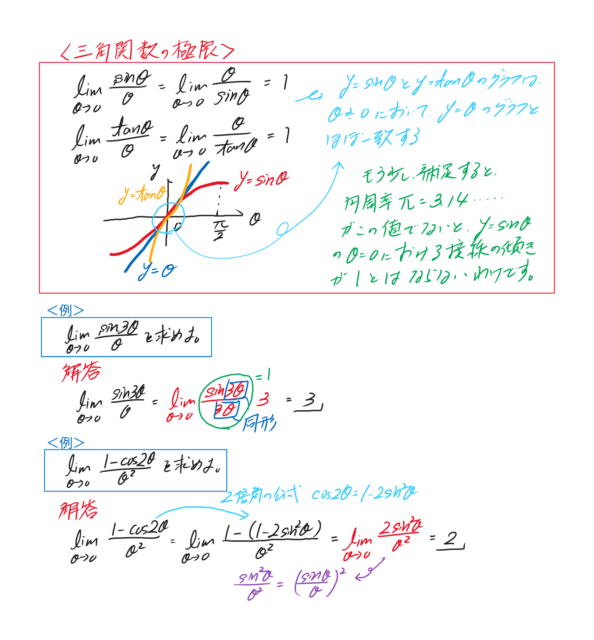 <三角関数の極限>
lim θ→0 sinθ/θ = lim θ→0 θ/sinθ = 1
lim θ→0 tanθ/θ = lim θ→0 θ/tanθ = 1
y=sinθとy=tanθのグラフは、
θ≒0において、y=θのグラフと
ほぼ一致する
y
y=tanθ
y=sinθ
0
π/2
θ
y=θ
もう少し補足すると、
円周率π=3.14……
がこの値でないと、y=sinθ
のθ=0における接線の傾き
が1とはならないわけです。
<例>
lim θ→0 sin3θ/θ を求めよ。
解答
lim θ→0 sin3θ/θ = lim θ→0 sin3θ/3θ 3 = 3
=1
同形
<例>
lim θ→0 1-cos2θ/θ² を求めよ。
解答
2倍角の公式 cos2θ=1-2sin²θ
lim θ→0 1-cos2θ/θ² = lim θ→0 1-(1-2sin²θ)/θ² = lim θ→0 2sin²θ/θ² = 2
sin²θ/θ² = (sinθ/θ)²